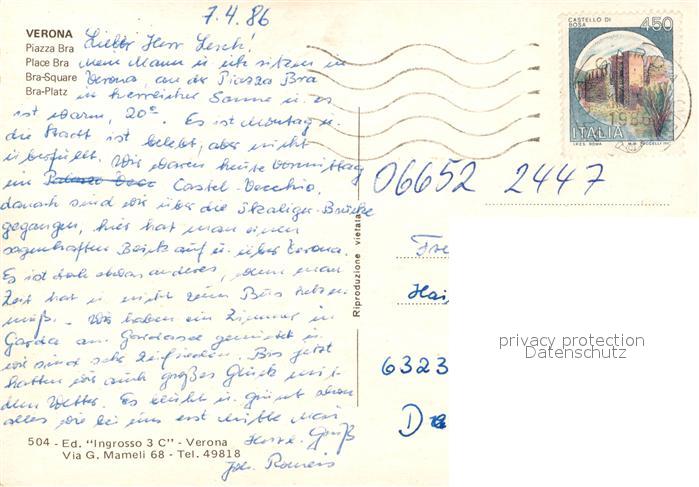 7.4.86
VERONA
Piazza Bra
Place Bra
Bra-Square
Bra-Platz
Lieber Herr Lesch!
Mein Mann u. ich sitzen in
Verona an der Piazza Bra
in herrlicher Sonne u. es
ist warm, 20°. Es ist Montag u.
die Stadt ist belebt, aber nicht
überfüllt. Wir waren heute Vormittag
im Castel-Vecchio,
danach sind wir über die Skaliger-Brücke
gegangen, hier hat man einen
sagenhaften Blick auf u. über Verona.
Es ist doch etwas anderes, wenn man
Zeit hat u. nicht zum Bus hetzen
muß. - Wir haben ein Zimmer in
Garda am Gardasee gemietet u.
wir sind sehr zufrieden. Bis jetzt
hatten wir auch großes Glück mit
dem Wetter. Es blüht u. grünt schon
alles wie bei uns erst Mitte Mai
Herzl. Gruß
Joh.
504 - Ed. "Ingrosso 3 C" - Verona
Via G. Mameli 68 - Tel. 49818
Riproduzione vietata
CASTELLO DI
BOSA
450
ITALIA
I.P.Z.S. ROMA
06652 2447
6323
privacy protection
Datenschutz